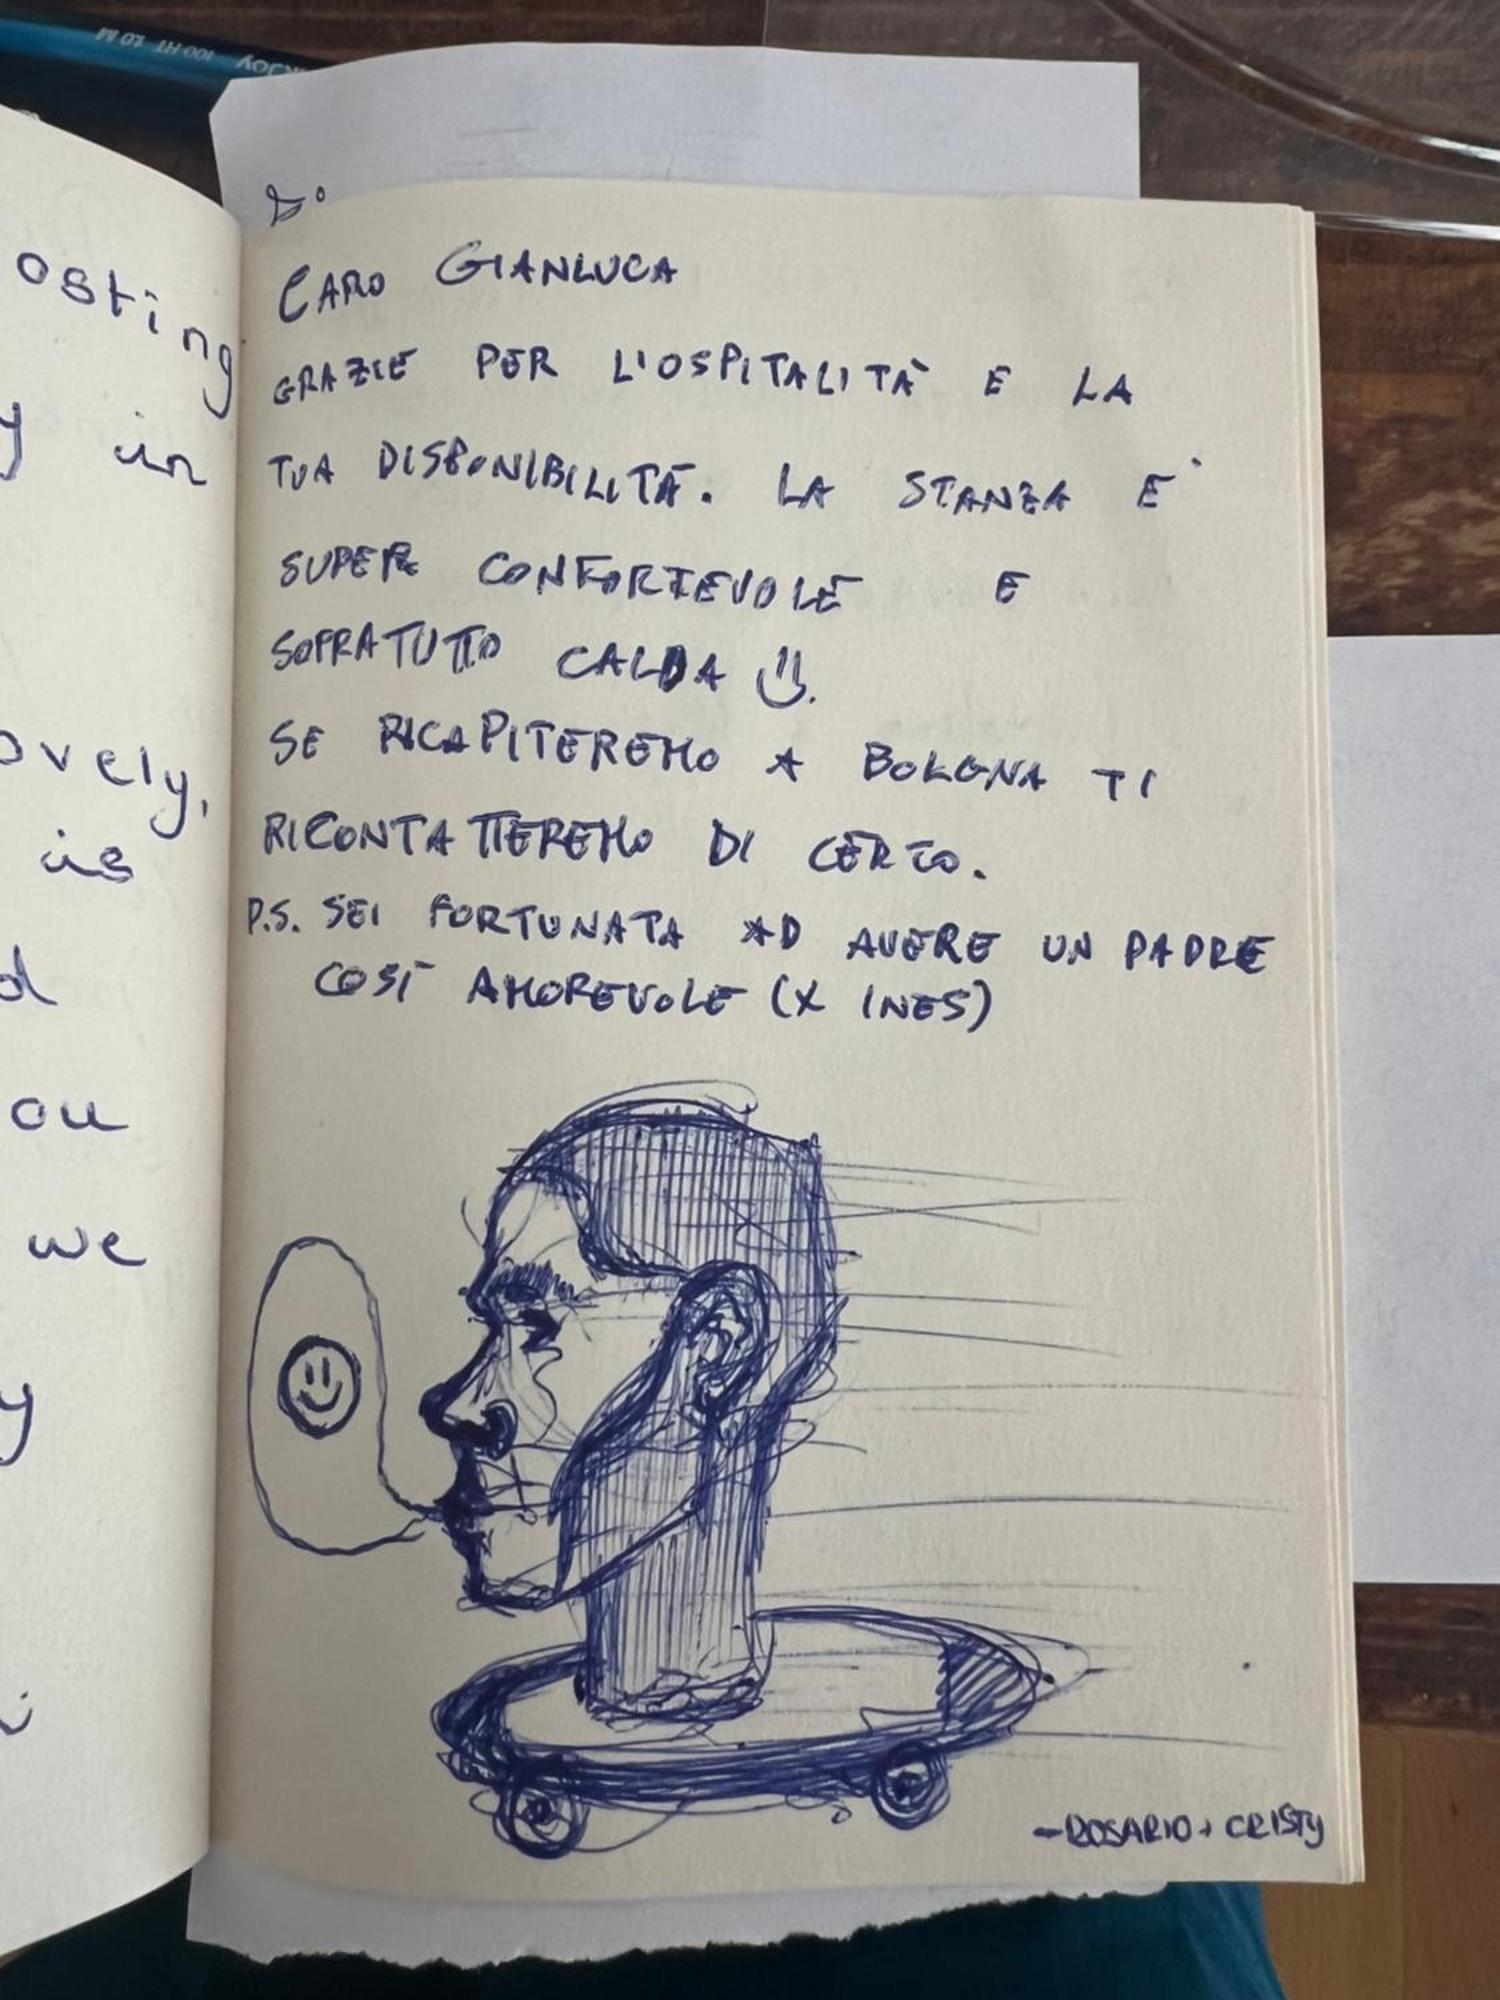 osting
y in
ovely,
is
d
ou
we
y
i
CARO GIANLUCA
GRAZIE PER L'OSPITALITÀ E LA
TUA DISPONIBILITÀ. LA STANZA E'
SUPER CONFORTEVOLE E
SOPRATUTTO CALDA
SE RICAPITEREMO A BOLOGNA TI
RICONTATTEREMO DI CERTO.
P.S. SEI FORTUNATA AD AVERE UN PADRE
COSÌ AMOREVOLE (X INES)
-ROSARIO + CRISTY